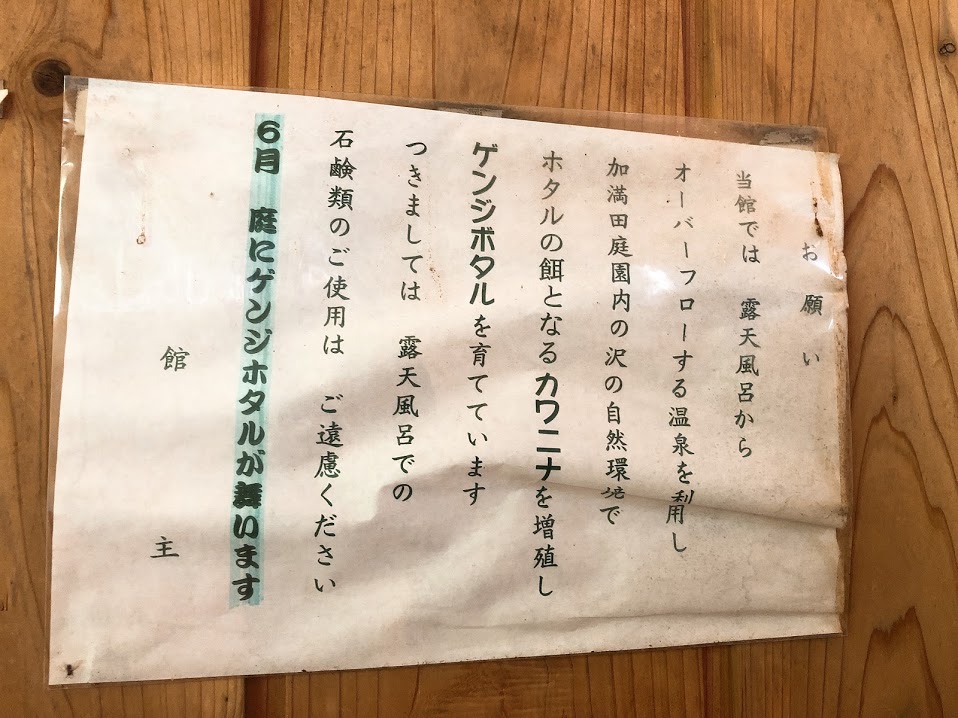 お願い
当館では 露天風呂から
オーバーフローする温泉を利用し
加満田庭園内の沢の自然環境で
ホタルの餌となるカワニナを増殖し
ゲンジボタルを育てています
つきましては 露天風呂での
石鹸類のご使用は ご遠慮ください
6月 庭にゲンジホタルが舞います
館主